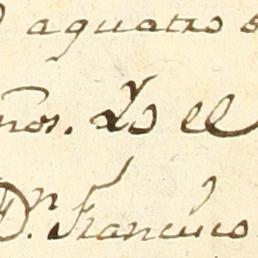 aquatro
ños. Yo el
Dn. Francisco